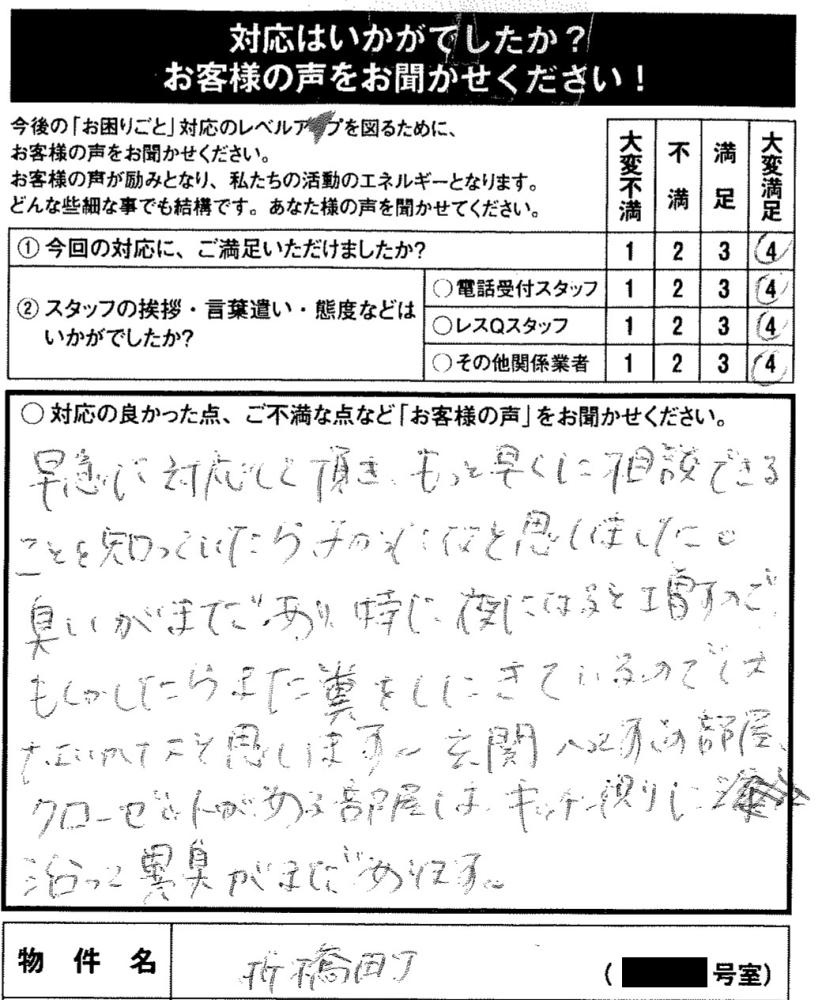 対応はいかがでしたか?
お客様の声をお聞かせください!
今後の「お困りごと」対応のレベルアップを図るために、
お客様の声をお聞かせください。
お客様の声が励みとなり、私たちの活動のエネルギーとなります。
どんな些細な事でも結構です。あなた様の声を聞かせてください。
大変不満 不満 満足 大変満足
①今回の対応に、ご満足いただけましたか? 1 2 3 4
②スタッフの挨拶・言葉遣い・態度などは
いかがでしたか?
○電話受付スタッフ 1 2 3 4
○レスQスタッフ 1 2 3 4
○その他関係業者 1 2 3 4
○対応の良かった点、ご不満な点など「お客様の声」をお聞かせください。
早急に対応して頂き、もっと早くに相談できる
ことを知っていたら よかったなと思いました。
臭いがまだあり、特に夜になると増すので、
もしかしたらまた糞をしにきているのでは
ないかなと思います。玄関入ってすぐの部屋、
クローゼットがある部屋は、キッチン
沿って異臭がまだあります。
物件名
(号室)